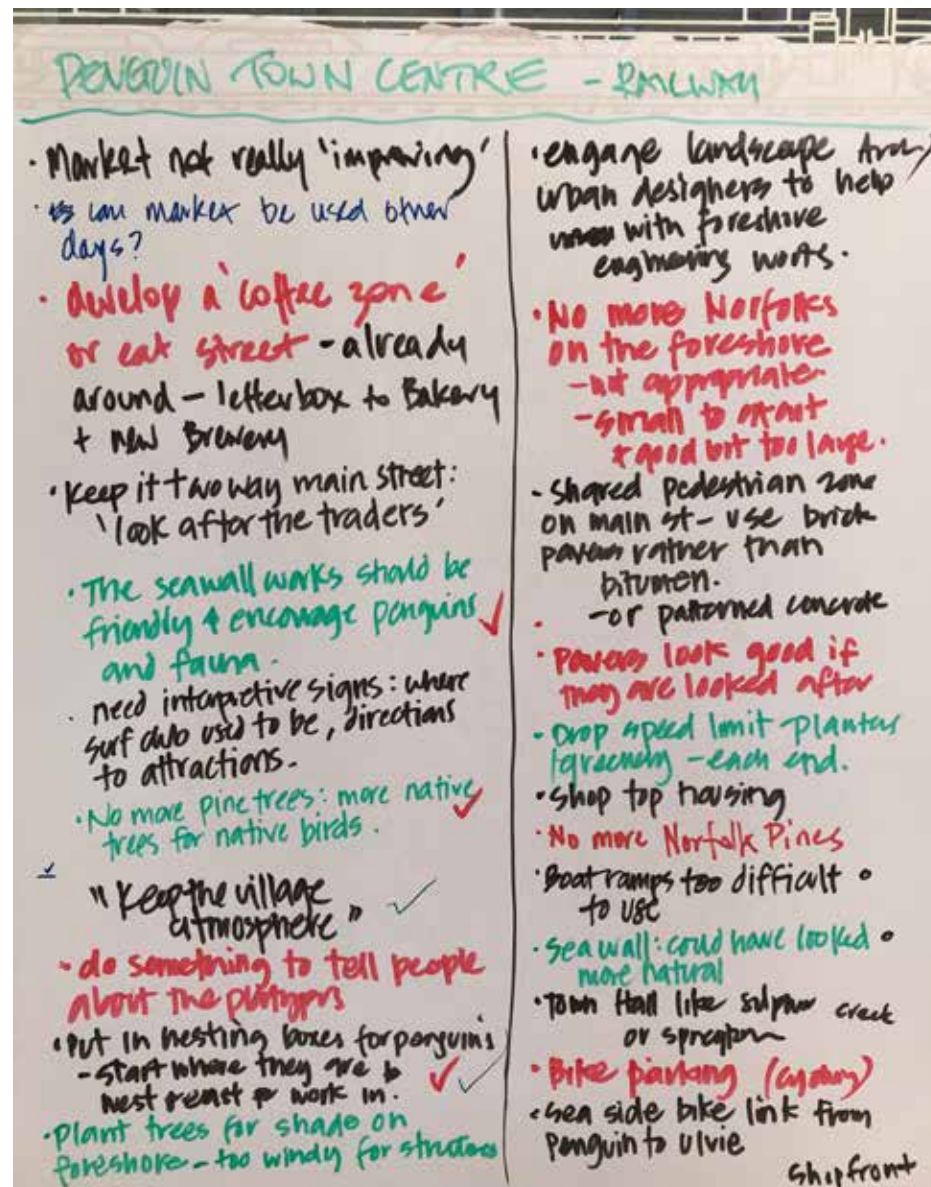 PENGUIN TOWN CENTRE - RAILWAY
· Market not really 'improving'
· can market be used other
days?
· develop a 'coffee zone'
or eat street - already
around - letterbox to Bakery
+ new Brewery
· Keep it two way main street:
'look after the traders'
· The seawall works should be
friendly & encourage penguins ✓
and fauna.
· need interpretive signs: where
surf club used to be, directions
to attractions.
· No more pine trees: more native ✓
trees for native birds.
✓
"Keep the village ✓
atmosphere"
- do something to tell people
about the platypus
· Put in nesting boxes for penguins
- start where they are ✓ ✓
west east work in.
· Plant trees for shade on
foreshore - too windy for structures
· engage landscape Arch/
urban designers to help
with foreshore
engineering works.
· No more Norfolks
on the foreshore
- not appropriate
- small to
good but too large.
- shared pedestrian zone
on main st - use brick
pavers rather than
bitumen.
- or patterned concrete
· Pavers look good if
they are looked after
· Drop speed limit - planters
/greenery - each end.
· Shop top housing
· No more Norfolk Pines
· Boat ramps too difficult ·
to use
· Sea wall: could have looked ·
more natural
· Town Hall like sulphur creek
or spreyton
· Bike parking
· Sea side bike link from
Penguin to Ulvie
shipfront